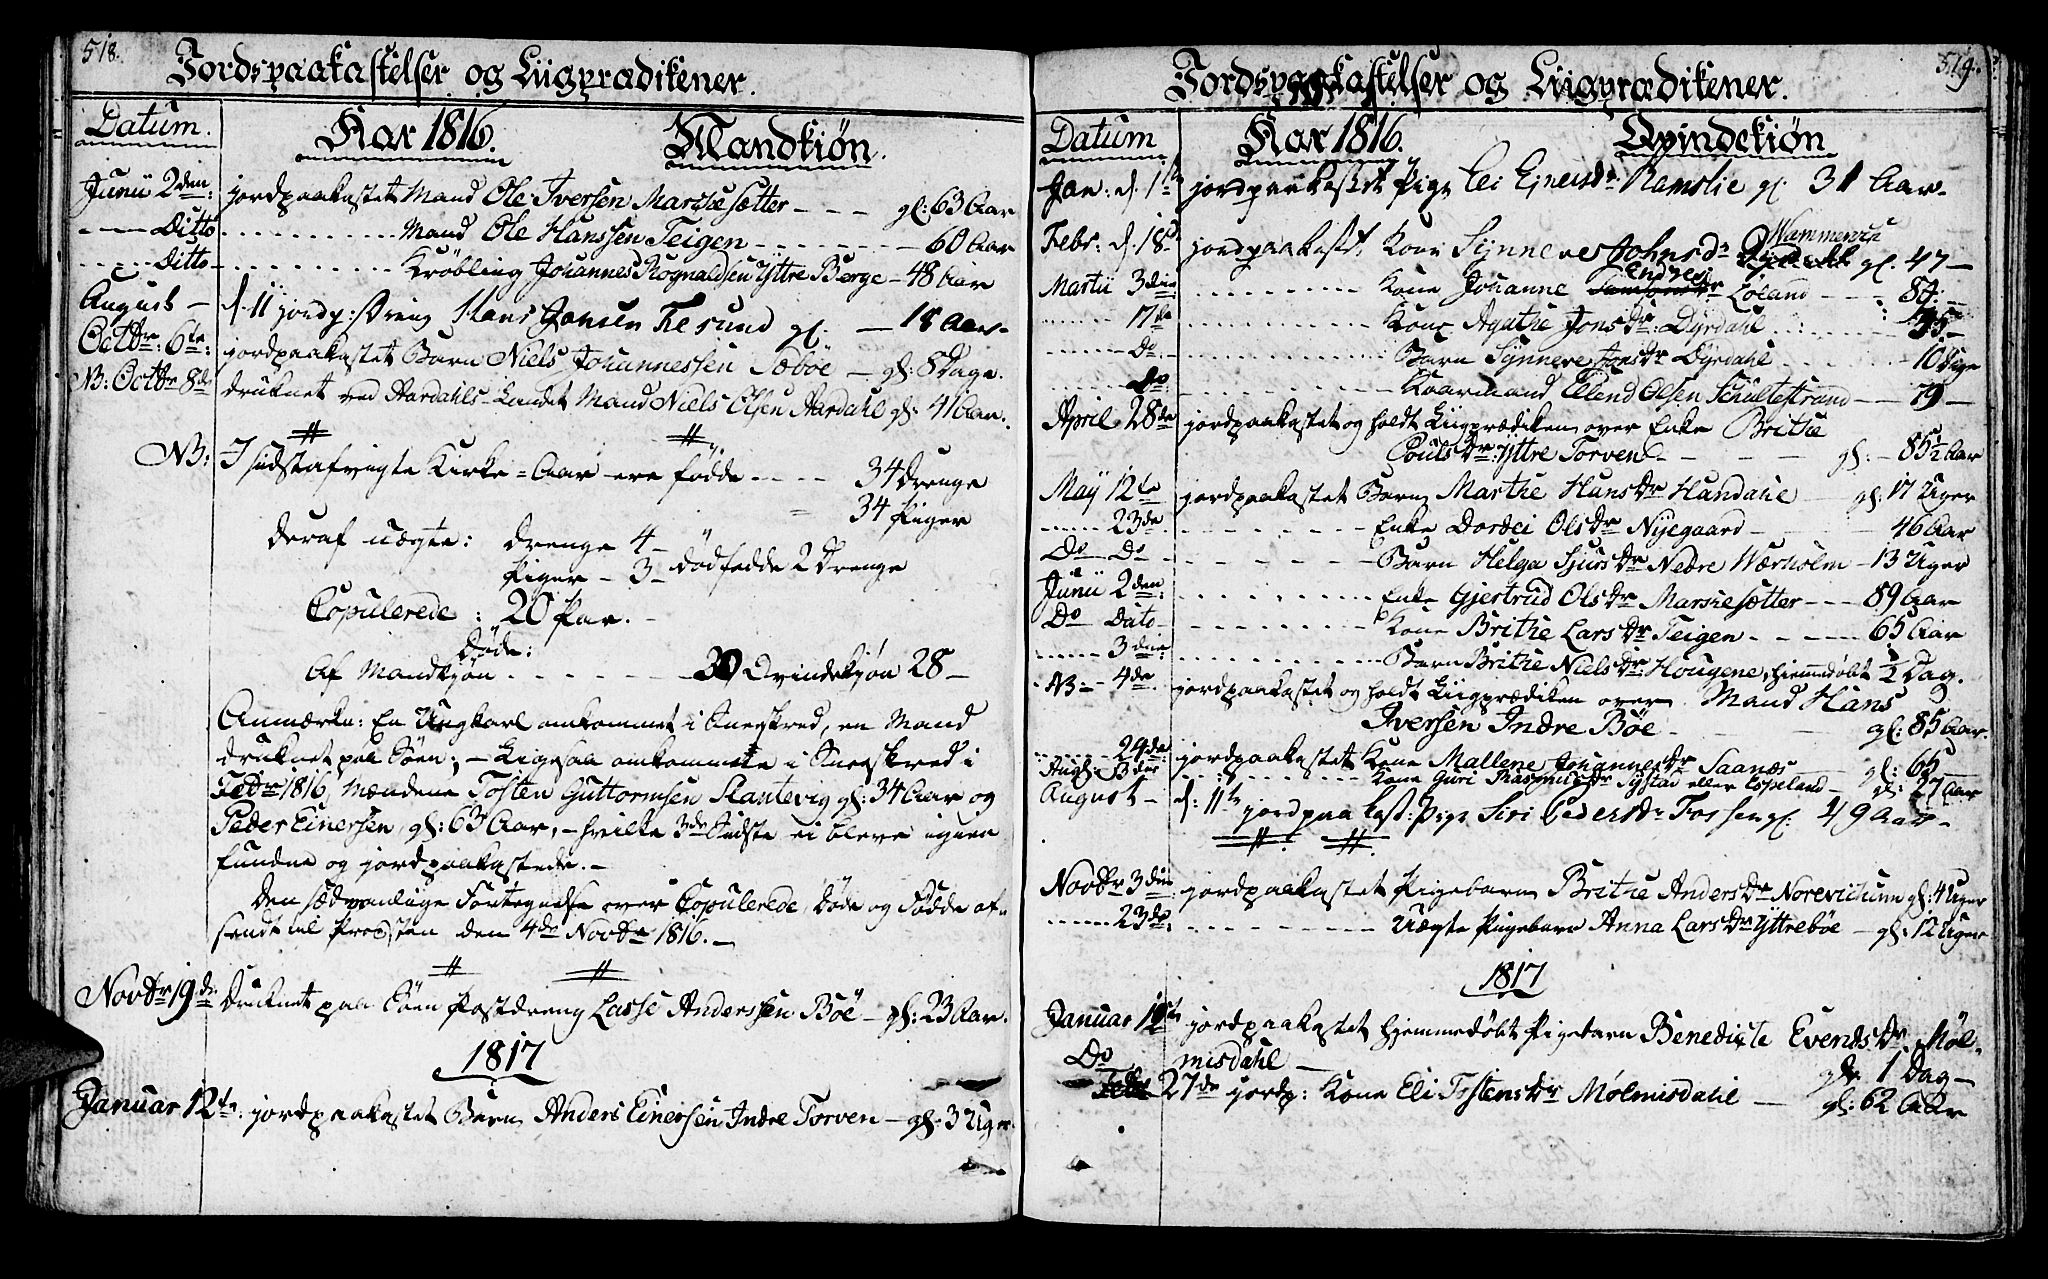 518.
Jordspaakastelser og Liigprædikener.
Datum.
Aar 1816.
Mandkiøn.
Junii 2den jordpaakastet Mand Ole Iversen Marthesætter - - - gl: 63 Aar
Ditto Mand Ole Hanssen Teigen - 60 Aar
Ditto Krøbling Johannes Rognaldsen Yttre Berge - 48 Aar
August - d. 11 jordp: Dreng Hans Jonsen Tesund gl. - 18 Aar.
Octbr: 6te: jordpaakastet Barn Niels Johannessen Sæbøe - gl: 8 Dage.
NB: Octbr 8de druknet ved Aardahls-Landet Mand Niels Olsen Aardahl gl: 41 Aar.
NB: I sidstafvigte Kirke-Aar ere fødde - - - - 34 Drenge
34 Piger
deraf uægte: Drenge 4 -
Piger - 3 - dødfødde 2 Drenge
Copulerede: 20 Par. -
Døde:
Af Mandkjøn - - - - - - 30 Qvindekjøn 28 -
Anmærkn: En Ungkarl omkommet i Sneeskred, en Mand
druknet paa Søen; - Ligesaa omkomne i Sneeskred i
Febr 1816, Mændene Tosten Guttormsen Slantevig gl: 34 Aar og
Peder Einersen, gl: 63 Aar, - hvilke 3de Sidste ei bleve igien
fundne og jordpaakastede. -
Den sædvanlige Fortegnelse over Copulerede, Døde og Fødde af-
sendt til Provsten den 4de Novbr 1816. -
Novbr 19de Druknet paa Søen Postdreng Lasse Anderssen Bøe - gl: 23 Aar.
1817
Januar 12te: jordpaakastet Barn Anders Einersen Indre Torven - gl: 3 Uger.
519.
Jordspaakastelser og Liigprædikener.
Datum
Aar 1816.
Qvindekiøn
Jan: d. 1ste jordpaakastet Pige Eli Ejnersdr Ramslie gl. 31 Aar.
Wammervik
Febr: d. 18 jordpaakast. Kone Synneve Johnsdr gl. 47 -
Endres
Martii 3die Kone Johanne dr Loland - - - 84 -
17de Kone Agathe Jonsdr Dyrdahl
Do Barn Synneve Jonsdr Dyrdahl 10 Dage
Do Kaarmand Ellend Olsen Schultestrand - - 79 -
April 28de jordpaakastet og holdt Liigprædiken over Enke Brithe
Poulsdr: Yttre Torven - - - gl: - 85½ Aar
May 12te jordpaakastet Barn Marthe Hansdr Hundahl gl: 17 Uger
23de Enke Dordei Olsdr Nyegaard - 46 Aar
Do - Do - Barn Helga Sjursdr Nedre Wærholm - 13 Uger
Junii 2den: Enke Gjertrud Olsdr Marthesætter - - - 89 Aar
Do - Dato - Kone Brithe Larsdr Teigen - - - - - 65 Aar
3die: Barn Brithe Nielsdr: Hougene, hjemmedøbt ½ Dag.
NB: - 4de. jordpaakastet og holdt Liigprædiken over Mand Hans
Iversen Indre Bøe - gl: 85 Aar.
24de jordpaakastet Kone Mallene Johannesdr Saanæs gl: 65 -
Kone Guri Rasmusdr Systad eller Espeland - gl: 27 Aar
August - d: 11te jordpaakast: Pige Siri Pedersdr Fossen gl. 49 Aar -
Novbr 3die jordpaakastet Pigebarn Brithe Andersdr Norevichum gl: 4 Uger
23de. Uægte Pigebarn Anna Larsdr Yttrebøe - gl: 12 Uger
1817
Januar jordpaakastet hjemmedøbt Pigebarn Benedicte Evendsdr Møl-
Do misdahl - gl: 1 Dag -
27de jordp: Kone Eli Tostensdr Mølmisdahl - gl: 62 Aar